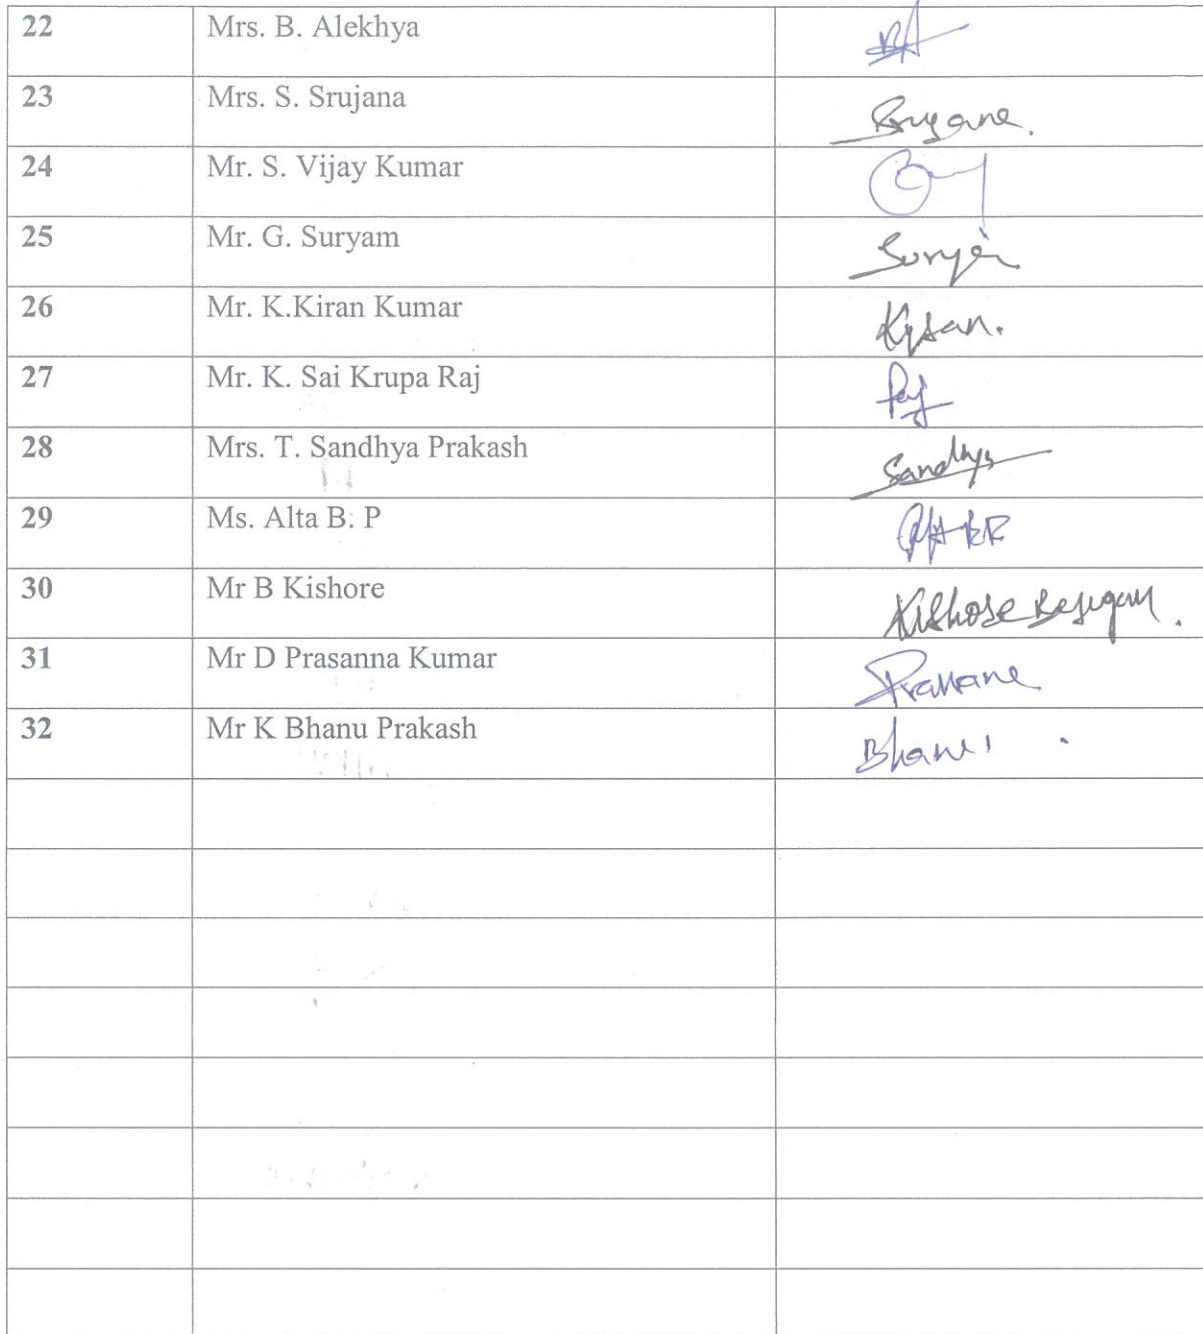 22 Mrs. B. Alekhya BA
23 Mrs. S. Srujana Srujana.
24 Mr. S. Vijay Kumar
25 Mr. G. Suryam Suryam
26 Mr. K.Kiran Kumar Kiran.
27 Mr. K. Sai Krupa Raj Raj
28 Mrs. T. Sandhya Prakash Sandhya
29 Ms. Alta B. P
30 Mr B Kishore Kishore
31 Mr D Prasanna Kumar Prasanna
32 Mr K Bhanu Prakash Bhanu